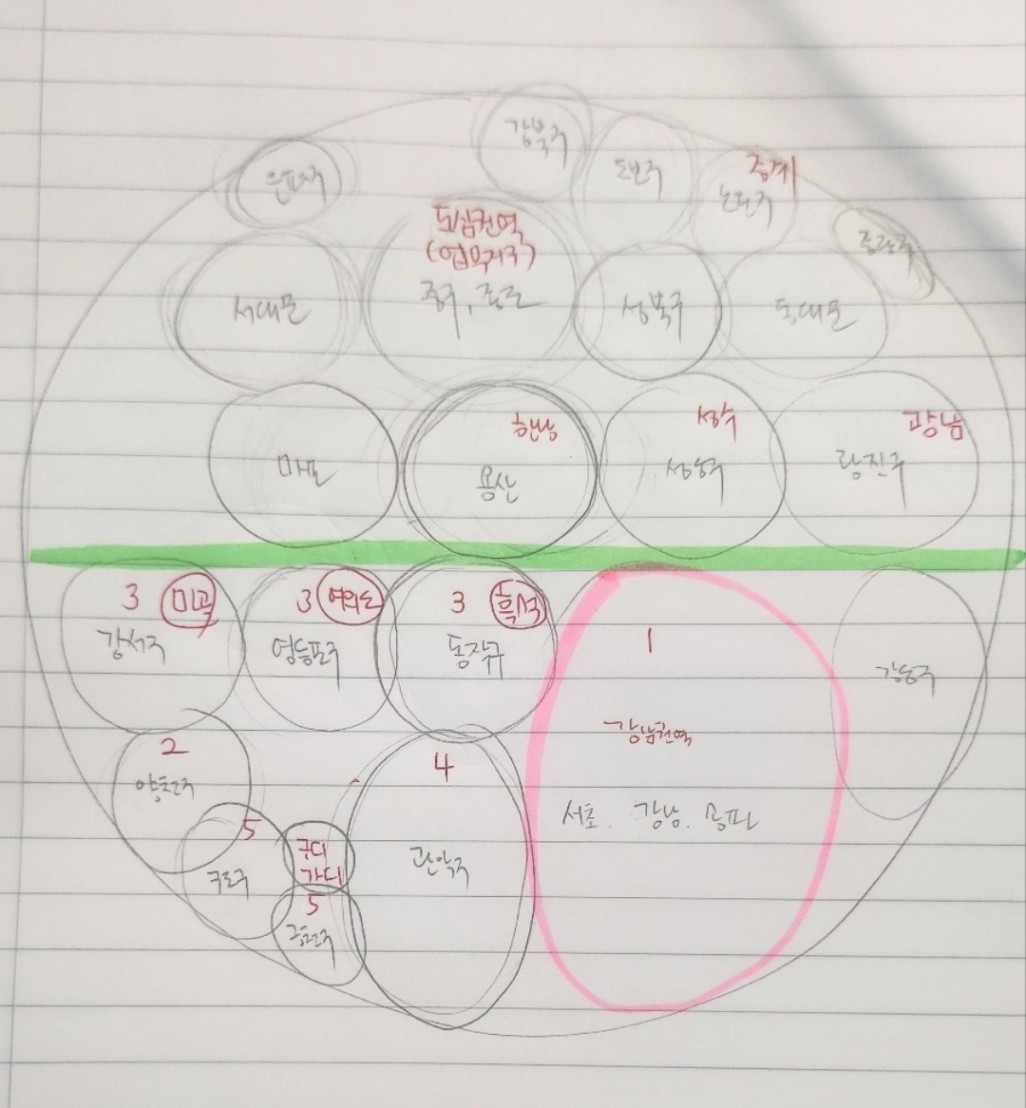 강북구
은평구
도봉구
중계
노원구
중랑구
도심권역
(업무지구)
중구, 종로
서대문
성북구
동대문
마포
한남
용산
성수
성동구
광남
광진구
3 마곡
강서구
3 여의도
영등포구
3 흑석
동작구
1
강남권역
서초. 강남. 송파
강동구
2
양천구
4
관악구
5
구로구
구디
가디
5
금천구